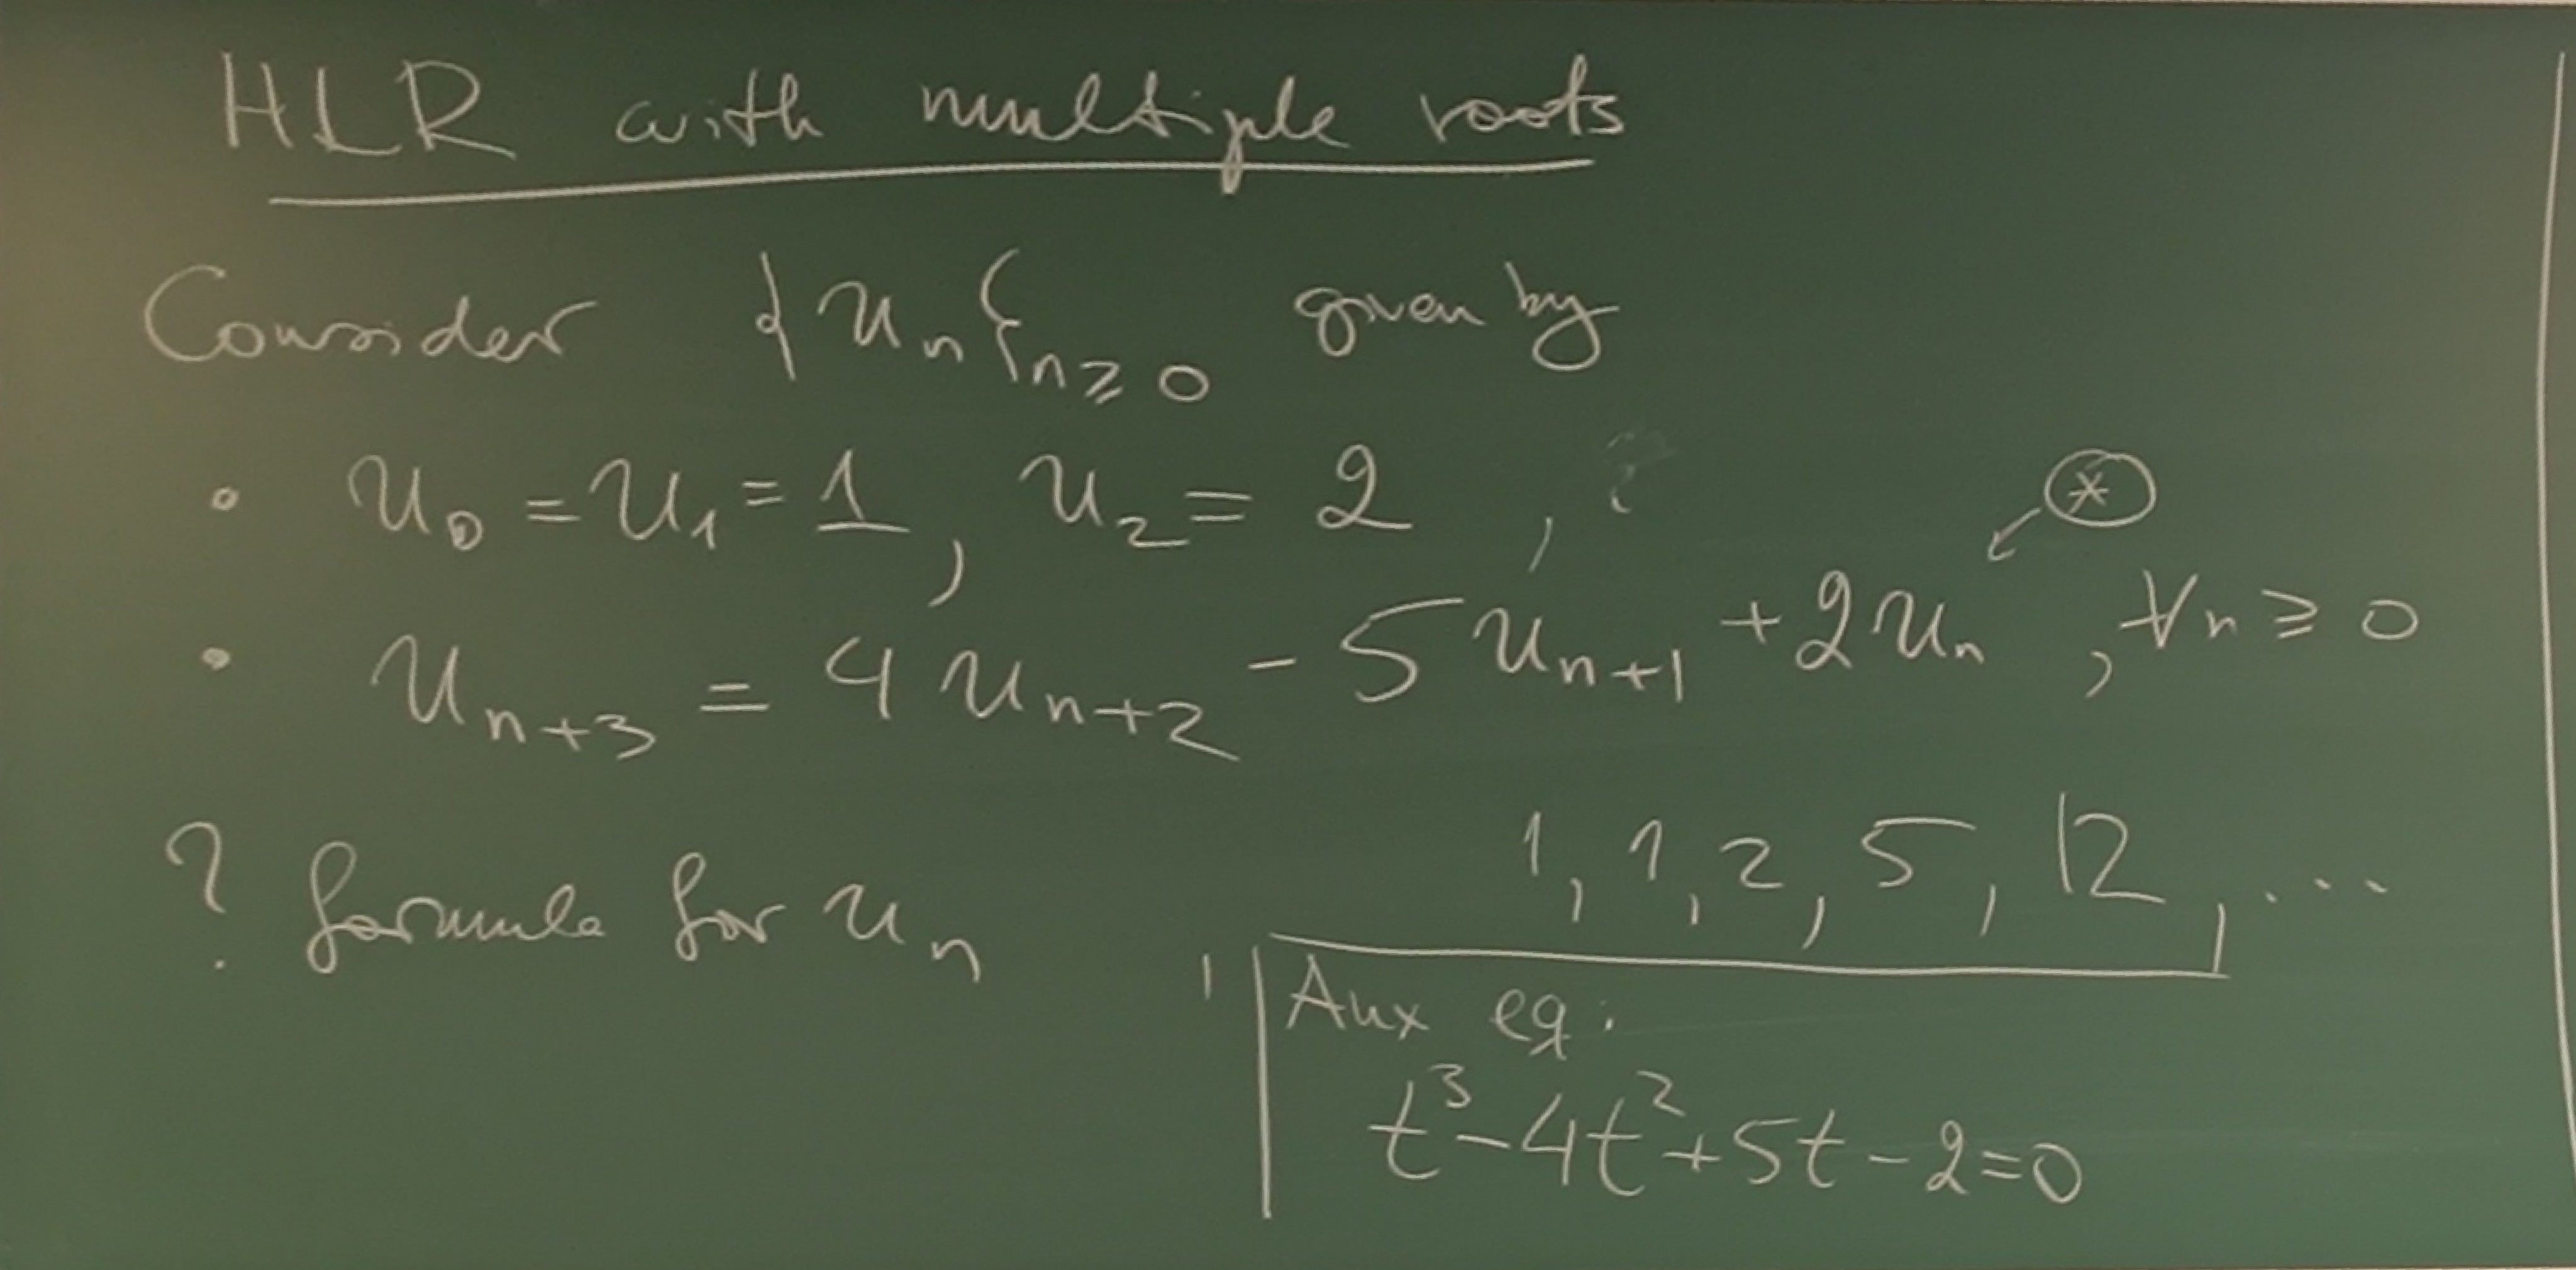 HLR with multiple roots
Consider {u_n}_{n≥0} given by
• u_0 = u_1 = 1, u_2 = 2,
⊛
• u_{n+3} = 4u_{n+2} - 5u_{n+1} + 2u_n, ∀n ≥ 0
? formula for u_n
1, 1, 2, 5, 12, ...
Aux eq:
t^3 - 4t^2 + 5t - 2 = 0